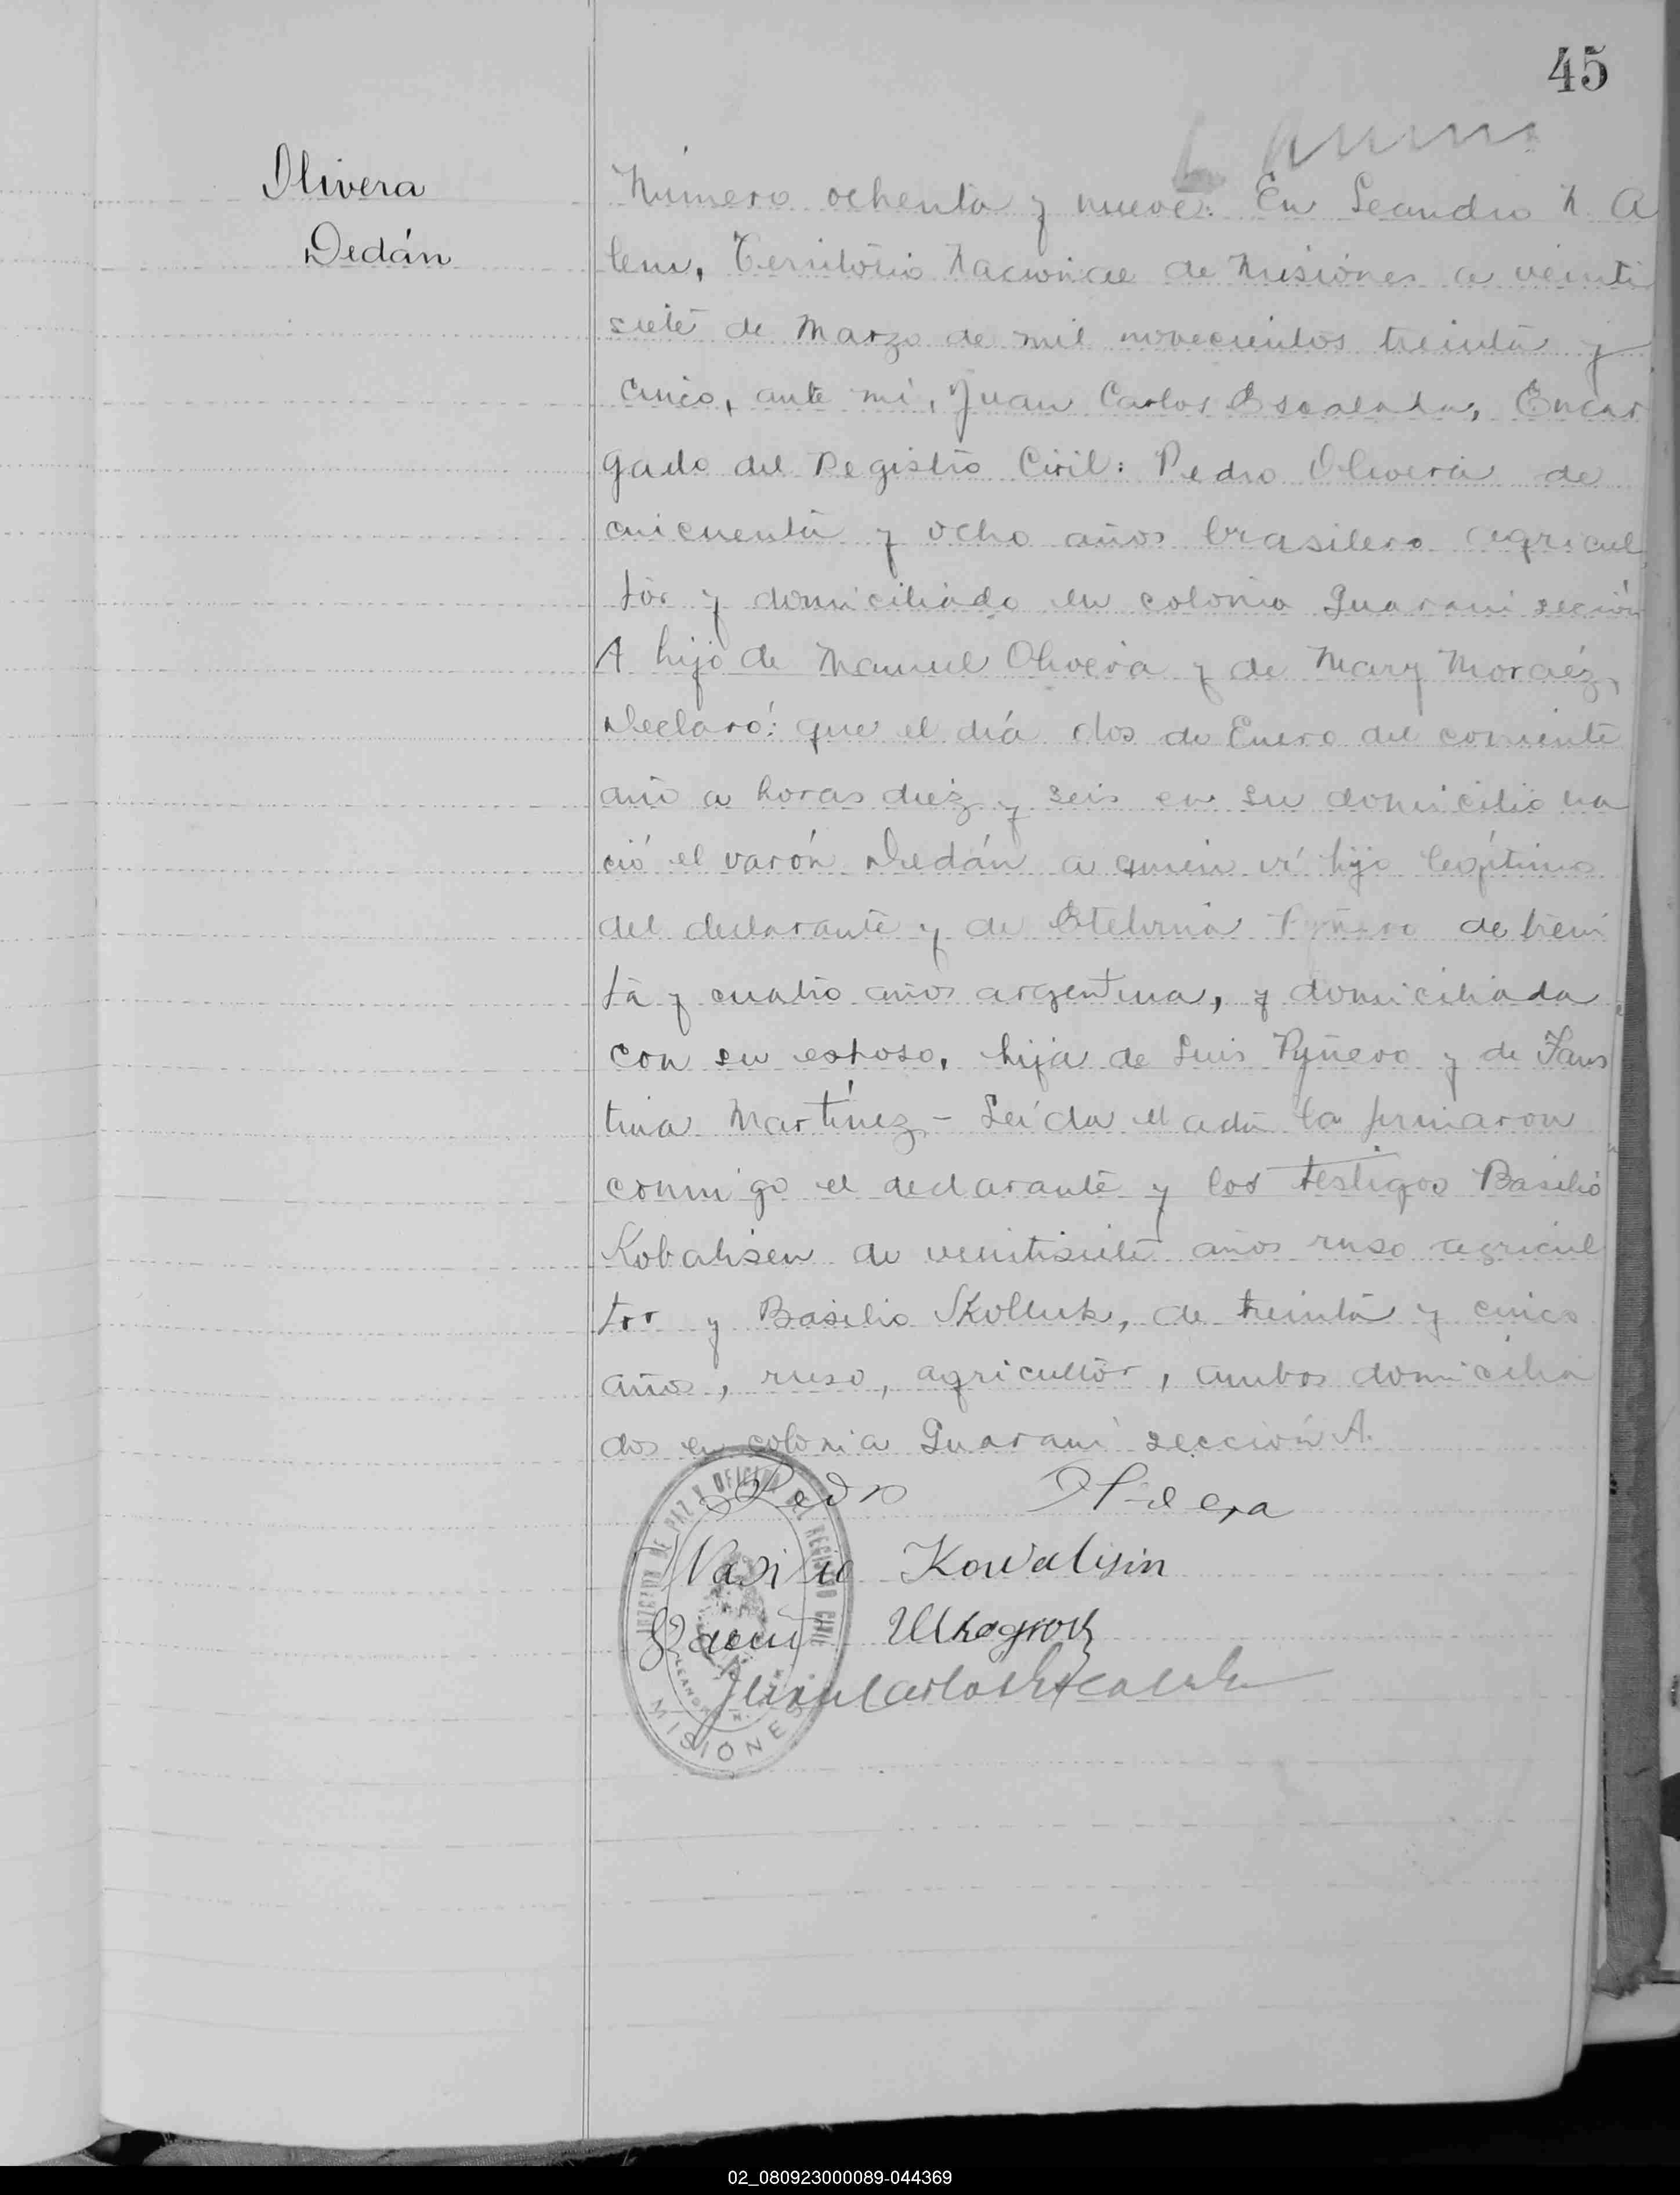 45
Olivera
Dedán
Número ochenta y nueve: En Leandro N. A
lem, Territorio Nacional de Misiones a veinti
siete de Marzo de mil novecientos treinta y
cinco, ante mí, Juan Carlos Escalada, Encar
gado del Registro Civil: Pedro Olivera de
cincuenta y ocho años brasilero agricul
tor y domiciliado en colonia Guaraní seción
A hijo de Manuel Olivera y de Mary Moraéz,
Declaró: que el día dos de Enero del corriente
año a horas diez y seis en su domicilio na
ció el varón Dedán a quien ví hijo legítimo
del declarante y de Etelvina Pyñero de trein
ta y cuatro años argentina, y domiciliada
con su esposo, hija de Luis Pyñero y de Faus
tina Martínez - Leída el acta la firmaron
conmigo el declarante y los testigos Basilio
Kobalisen de veintisiete años ruso agricul
tor y Basilio Skolluk, de treinta y cinco
años, ruso, agricultor, ambos domicilia
dos en colonia Guaraní sección A.
Pedro Olivera
Kowalisin
Juan Carlos Escalada
JUZGADO DE PAZ Y OFICINA DEL REGISTRO CIVIL
MISIONES
02_080923000089-044369